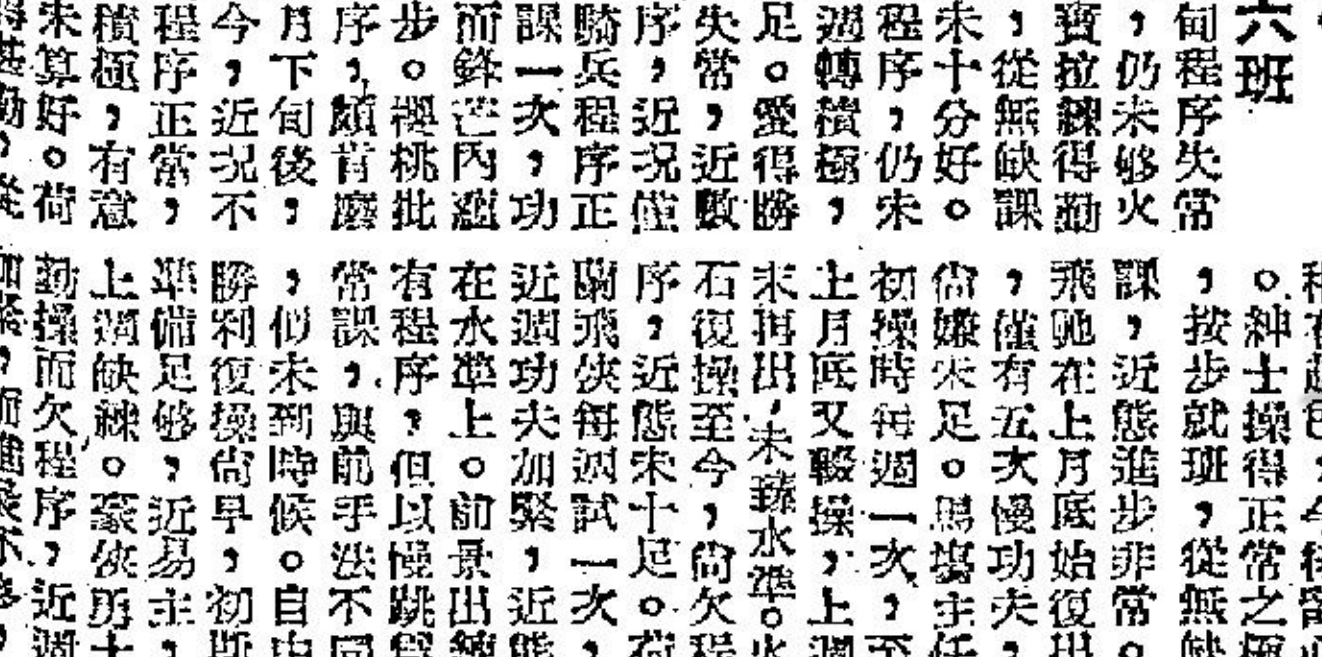 六班
甸程序失常
，仍未够火
賽拉練得勤
，從無缺課
未十分好。
程序，仍未
週轉積極，
足。愛得勝
失常，近數
序，近况僅
騎兵程序正
課一次，功
而鋒芒內蘊
步。櫻桃批
序，頗肯磨
月下旬後，
今，近况不
程序正常，
積極，有意
未算好。荷
。紳士操得正常之極
，按步就班，從無缺
課，近態進步非常。
飛馳在上月底始復出
，僅有五次慢功夫，
尙嫌未足。馬塲主任
初操時每週一次，至
上月底又輟操，上週
未再出，未臻水準。火
石復操至今，尙欠程
序，近態未十足。荷
蘭飛俠每週試一次，
近週功夫加緊，近態
在水準上。前景出
有程序，但以慢跳
常課，與前手法不同
，似未到時候。自由
勝利復操尙早，初
準備足够，近易主，
上週缺練。豪俠勇士
勤操而欠程序，近週